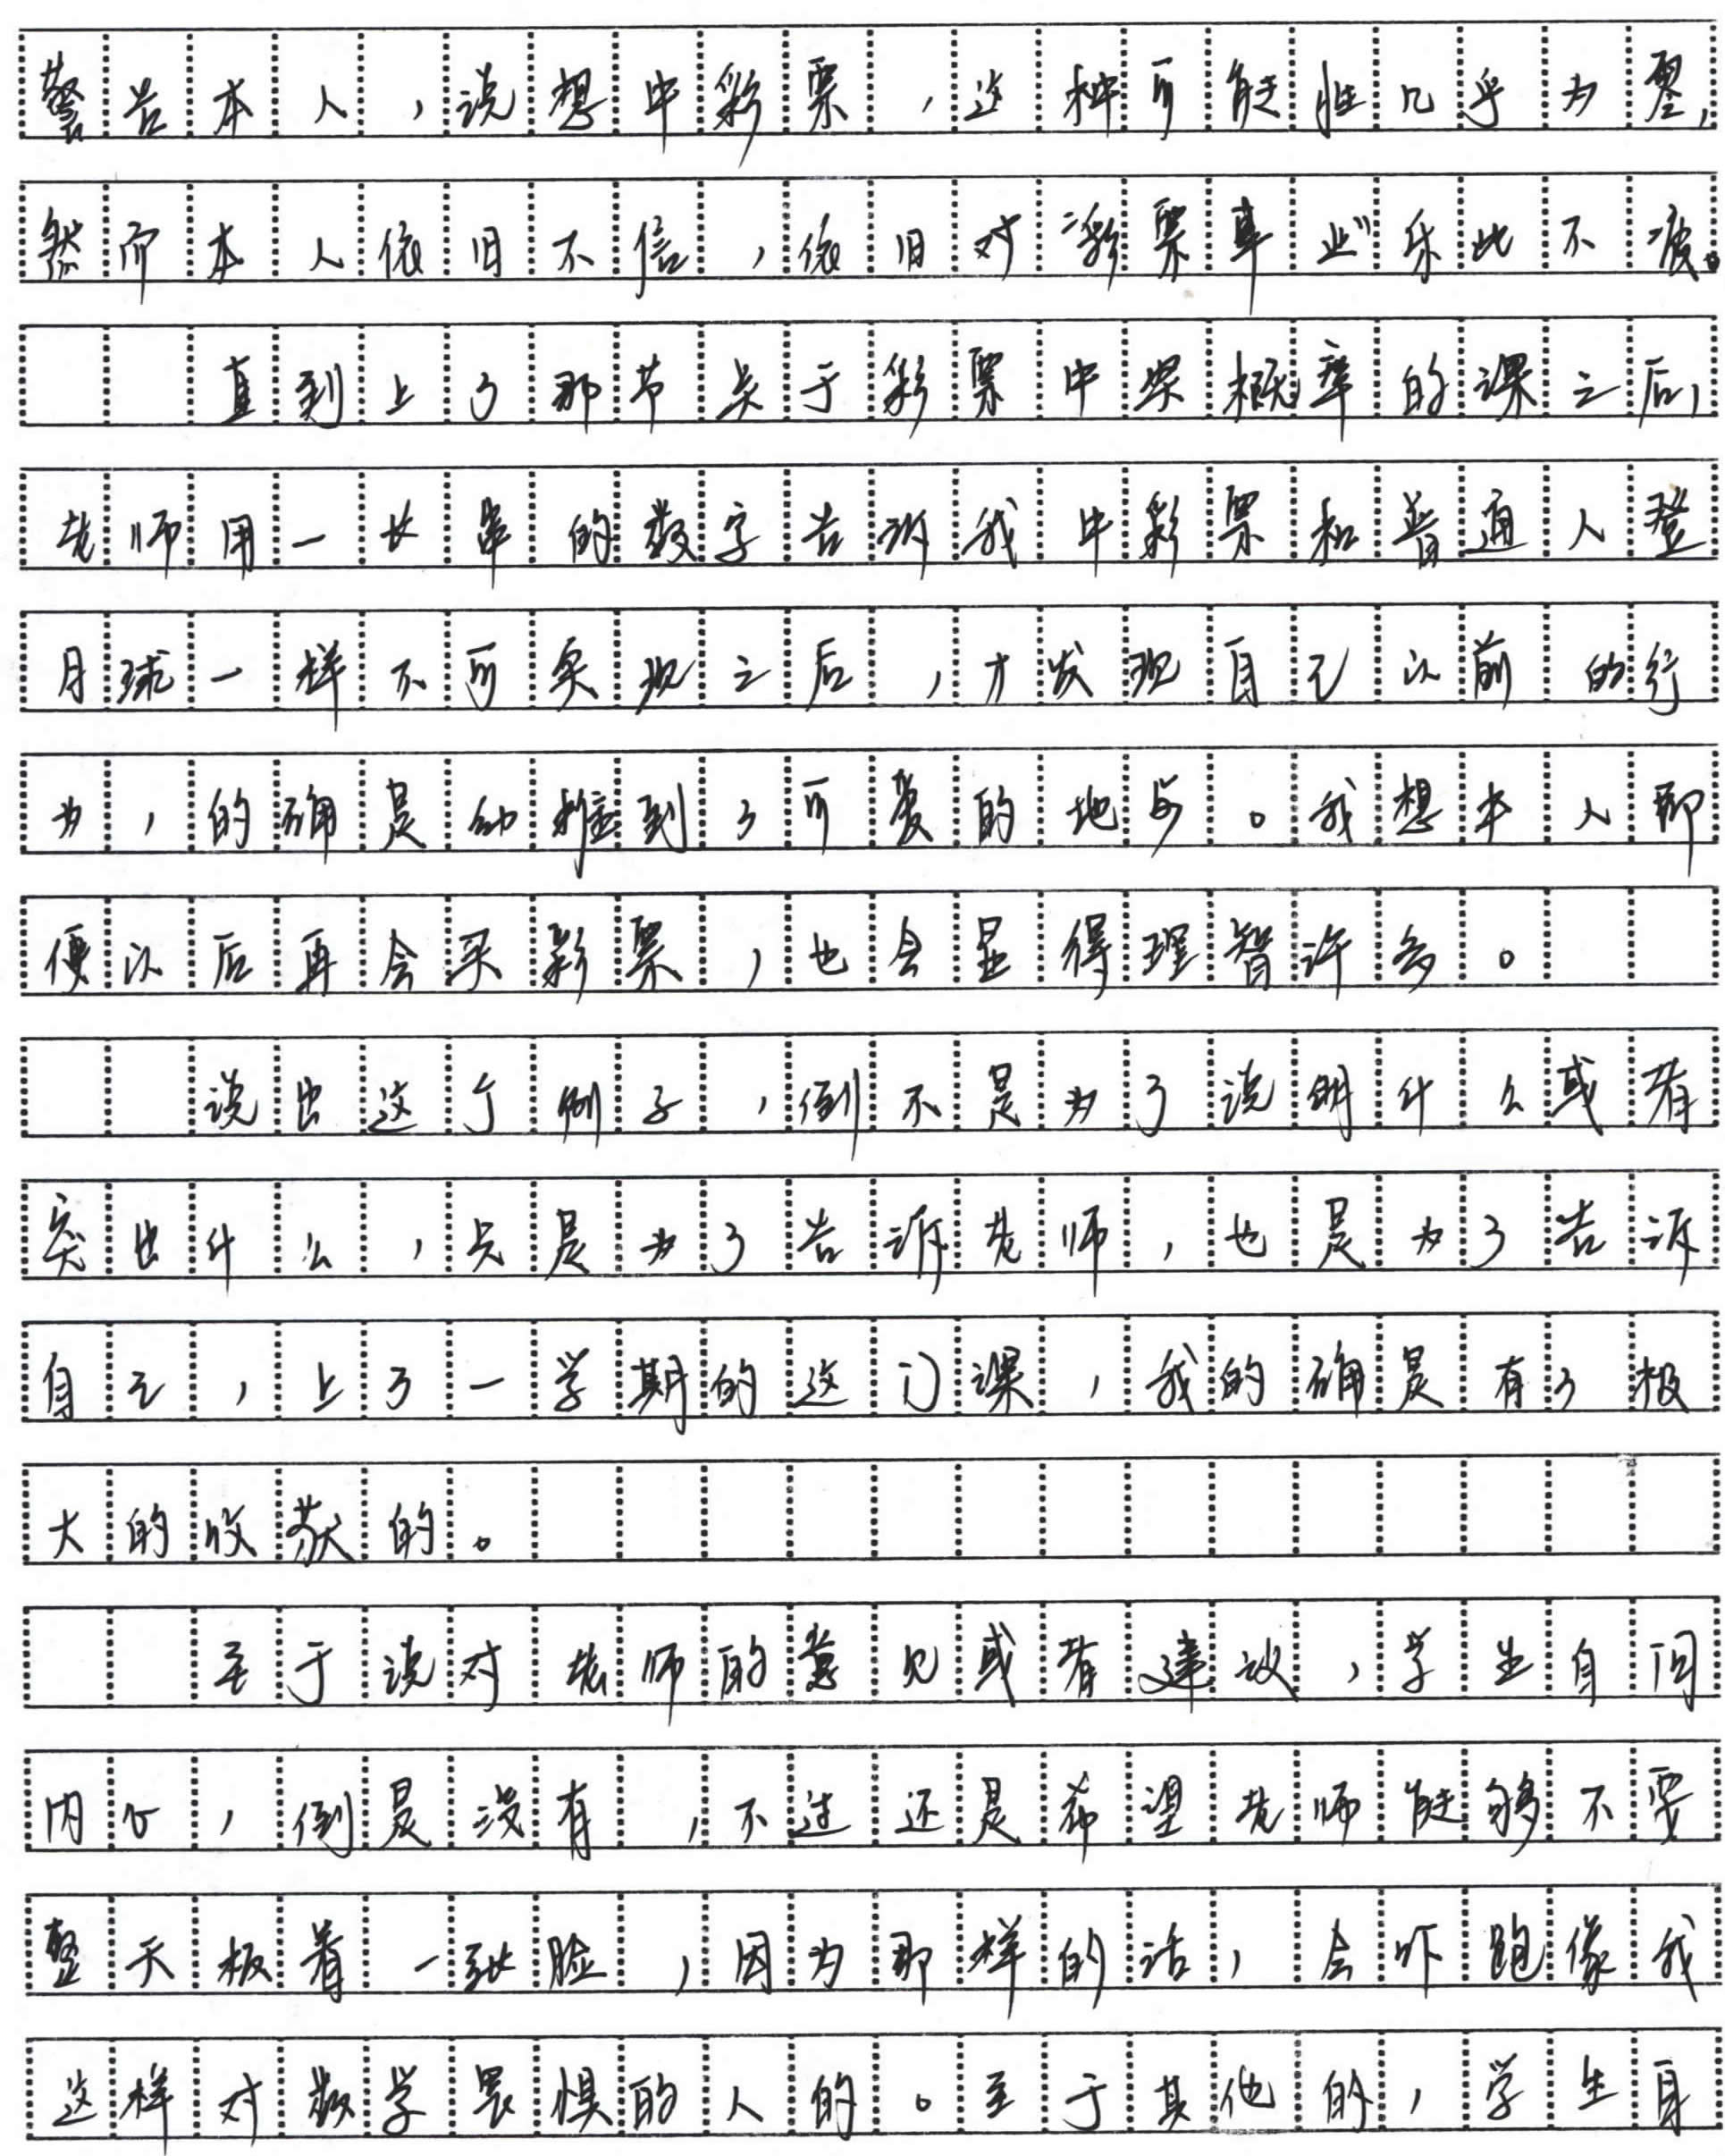 警告本人，说想中彩票，这种可能性几乎为零，
然而本人依旧不信，依旧对“彩票事业”乐此不疲。
直到上了那节关于彩票中奖概率的课之后，
老师用一长串的数字告诉我中彩票和普通人登
月球一样不可实现之后，才发现自己以前的行
为，的确是幼稚到了可爱的地步。我想本人即
便以后再会买彩票，也会显得理智许多。
说出这个例子，倒不是为了说明什么或者
突出什么，只是为了告诉老师，也是为了告诉
自己，上了一学期的这门课，我的确是有了极
大的收获的。
至于说对老师的意见或者建议，学生自问
内心，倒是没有，不过还是希望老师能够不要
整天板着一张脸，因为那样的话，会吓跑像我
这样对数学畏惧的人的。至于其他的，学生自